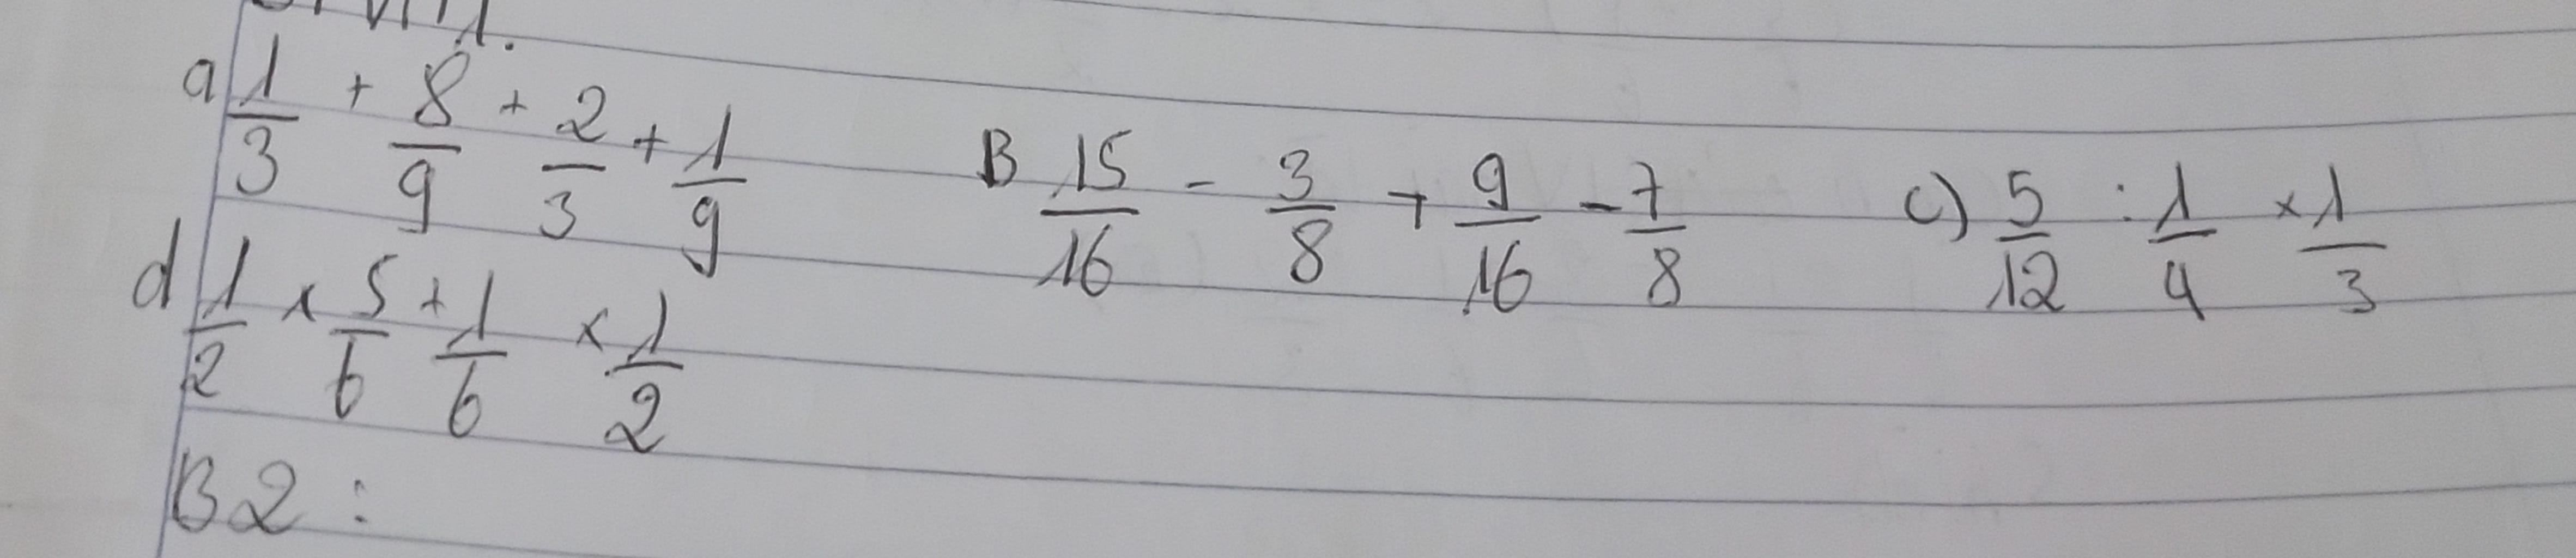 a 1/3 + 8/9 + 2/3 + 1/9 B 15/16 - 3/8 + 9/16 - 7/8 c) 5/12 : 1/4 × 1/3
d 1/2 × 5/6 + 1/6 × 1/2
B2 :